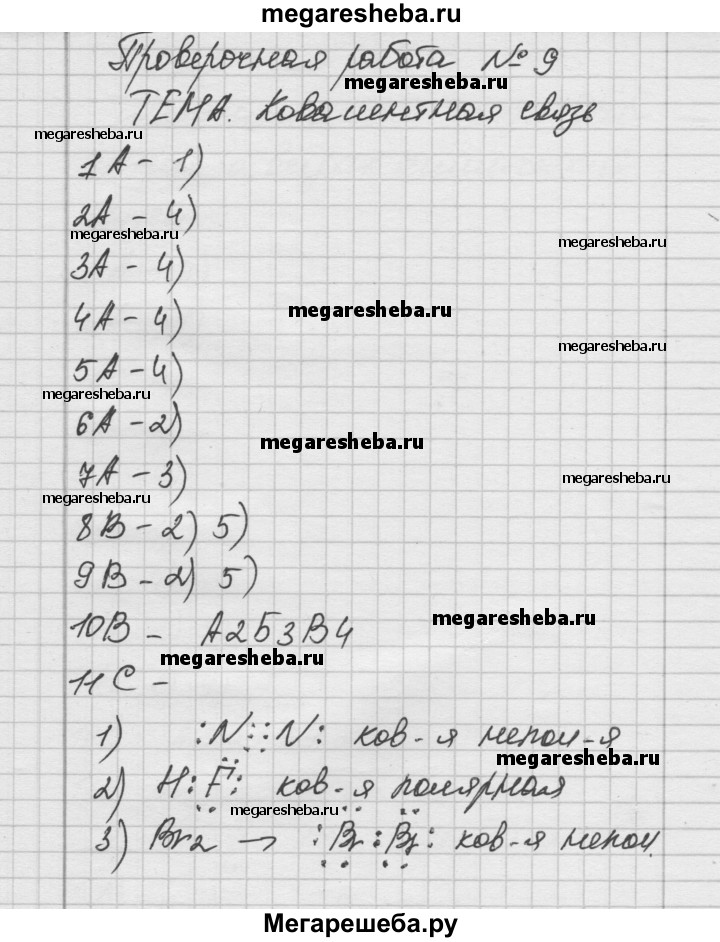 megaresheba.ru
Проверочная работа № 9
megaresheba.ru
ТЕМА. Ковалентная связь
megaresheba.ru
1А - 1)
2А - 4)
megaresheba.ru
megaresheba.ru
3А - 4)
megaresheba.ru
4А - 4)
megaresheba.ru
5А - 4)
megaresheba.ru
6А - 2)
megaresheba.ru
7А - 3)
megaresheba.ru
megaresheba.ru
8В - 2) 5)
9В - 2) 5)
megaresheba.ru
10В - А2Б3В4
megaresheba.ru
11С -
1) :N:::N: ков-я непол-я
megaresheba.ru
2) H:F: ков-я полярная
megaresheba.ru
3) Br2 → :Br:Br: ков-я непол.
Мегарешеба.ру